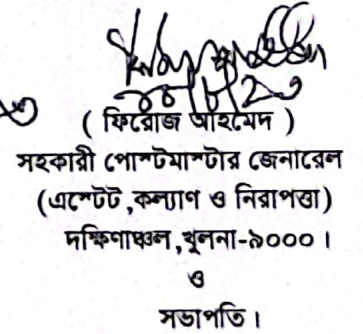 ( ফিরোজ আহমেদ )
সহকারী পোস্টমাস্টার জেনারেল
(এস্টেট,কল্যাণ ও নিরাপত্তা)
দক্ষিণাঞ্চল,খুলনা-৯০০০।
ও
সভাপতি।